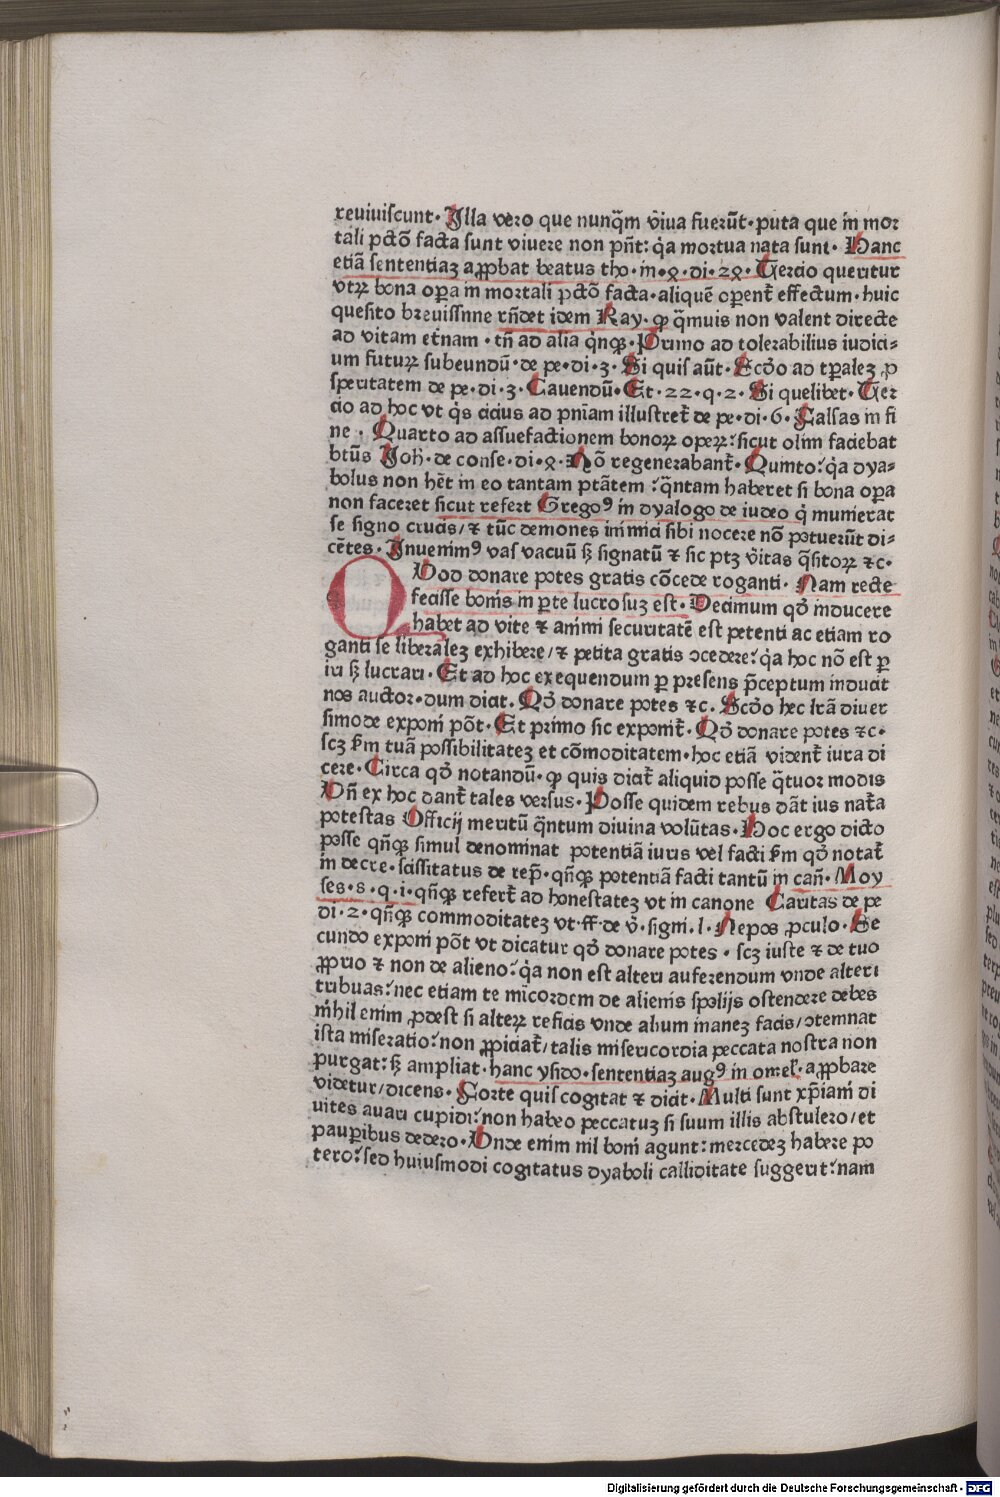 reuiuiscunt · Illa vero que nunq̃m viua fuerūt · puta que in mor
tali pctō facta sunt viuere non pñt: q̇a mortua nata sunt · Hanc
etiā sententiaʒ aꝓpbat beatus tho · in · ꝗ · di · 2ꝗ · Tercio queritur
vtꝝ bona oꝑa in mortali pctō facta · aliquē oꝑent̄ effectum · huic
quesito breuissime rñdet idem Ray · ꝙ q̃muis non valent directe
ad vitam et̄nam · tñ ad alia q̇nꝙ · Primo ad tolerabilius iudici⸗
um futuꝝ subeundū · de pe · di · 3 · Si quis aūt · Scd̄o ad tꝑaleʒ ꝓ
speritatem de pe · di · 3 · Cauendū · Et · 22 · q · 2 · Si quelibet · Ter
cio ad hoc vt q̇s cicius ad pniam illustret̄ de pe · di · 6 · Falsas in fi
ne · Quarto ad assuefactionem bonoꝝ opeꝝ: sicut olim faciebat
btūs Joh̄ · de conse · di · ꝗ · Nō regenerabant̄ · Quinto: q̇a dya⸗
bolus non het̄ in eo tantam ptātem: q̃ntam haberet si bona oꝑa
non faceret sicut refert Gregoꝰ in dyalogo de iudeo q̇ munierat
se signo crucis / ⁊ tūc demones inimici sibi nocere nō potuerūt di⸗
cētes · Inuenimꝰ vas vacuū sʒ signatū ⁊ sic ptʒ v̄itas q̃sitoꝝ ⁊c ·
QVod donare potes gratis cōcede roganti · Nam recte
fecisse bonis in ꝑte lucrosuʒ est · Decimum qd̄ inducere
habet ad vite ⁊ animi securitatē est petenti ac etiam ro
ganti se liberaleʒ exhibere / ⁊ petita gratis ɔcedere: q̇a hoc nō est ꝑ
iri sʒ lucrari · Et ad hoc exequendum ꝑ presens p̄ceptum inducit
nos auctor · dum dicit · Qd̄ donare potes ⁊c · Scd̄o hec lrā diuer
simode exponi pōt · Et primo sic exponit̄ · Qd̄ donare potes ⁊c ·
scʒ ẜm tuā possibilitateʒ et cōmoditatem · hoc etiā vident̄ iura di
cere · Circa qd̄ notandū · ꝙ quis dicit̄ aliquid posse q̃tuor modis
Vñ ex hoc dant̄ tales versus · Posse quidem rebus dāt ius nat̄a
potestas Officij meritū q̃ntum diuina volūtas · Hoc ergo dicto
posse qñꝙ simul denominat potentiā iuris vel facti ẜm qd̄ notat̄
in decre · scissitatus de rep̄ · qñꝙ potentiā facti tantū in cañ · Moy
ses · 8 · q · i · qñꝙ refert̄ ad honestateʒ vt in canone Caritas de pe
di · 2 · qñꝙ commoditateʒ vt · ff · de v̄ · signi · l · Nepos ꝓculo · Se
cundo exponi pōt vt dicatur qd̄ donare potes · scʒ iuste ⁊ de tuo
ꝓprio ⁊ non de alieno: q̇a non est alteri auferendum vnde alteri
tribuas: nec etiam te mīcordem de alienis spolijs ostendere debes
nihil enim ꝓdest si alteꝝ reficis vnde alium inaneʒ facis / ɔtemnat
ista miseratio: non ꝓpiciat̄ / talis misericordia peccata nostra non
purgat: sʒ ampliat · hanc ysido · sententiaʒ augꝰ in omel̄ · aꝓpbare
videtur / dicens · Forte quis cogitat ⁊ dicit · Multi sunt xp̄iani di
uites auari cupidi: non habeo peccatuʒ si suum illis abstulero / et
pauꝑibus dedero · Vnde enim nil boni agunt: mercedeʒ habere po
tero: sed huiusmodi cogitatus dyaboli calliditate suggerit: nam
Digitalisierung gefördert durch die Deutsche Forschungsgemeinschaft - DFG